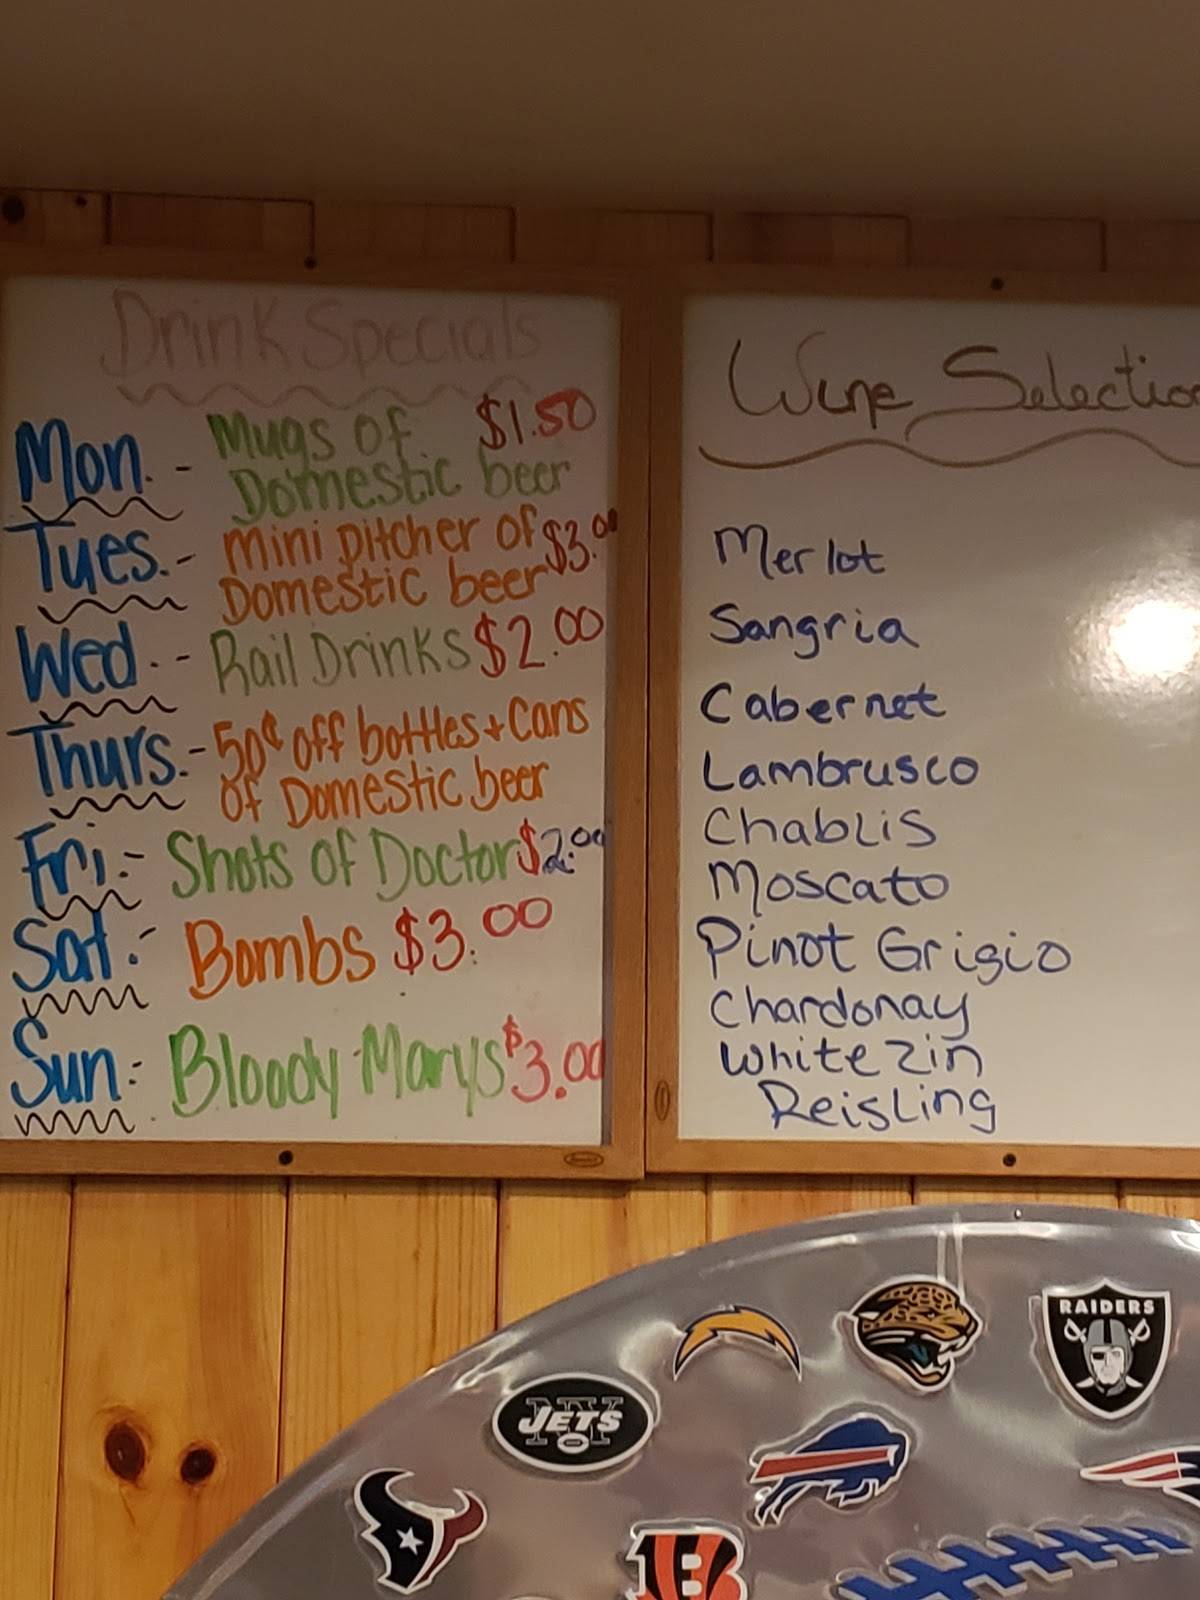 Drink Specials
Mon. - Mugs of $1.50
Domestic beer
Tues. - mini pitcher of $3.00
Domestic beer
Wed. - Rail Drinks $2.00
Thurs. - 50¢ off bottles + Cans
of Domestic beer
Fri. - Shots of Doctor $2.00
Sat. - Bombs $3.00
Sun. - Bloody Marys $3.00
Wine Selection
Merlot
Sangria
Cabernet
Lambrusco
Chablis
Moscato
Pinot Grigio
Chardonay
White Zin
Reisling
RAIDERS
NY
JETS
B